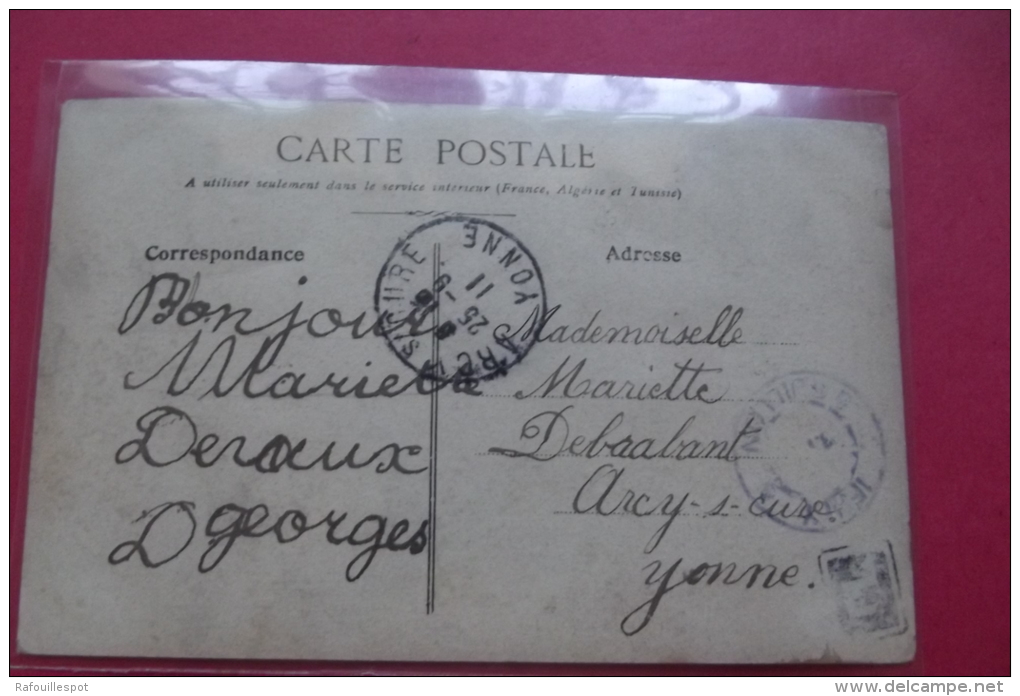 CARTE POSTALE
A utiliser seulement dans le service intérieur (France, Algérie et Tunisie)
Correspondance
Bonjour
Mariette
Deraux
D georges
Adresse
Mademoiselle
Mariette
Debaabant
Arcy-s-cure
yonne.
YONNE
11
25
Rafouillespot
delcampe.net